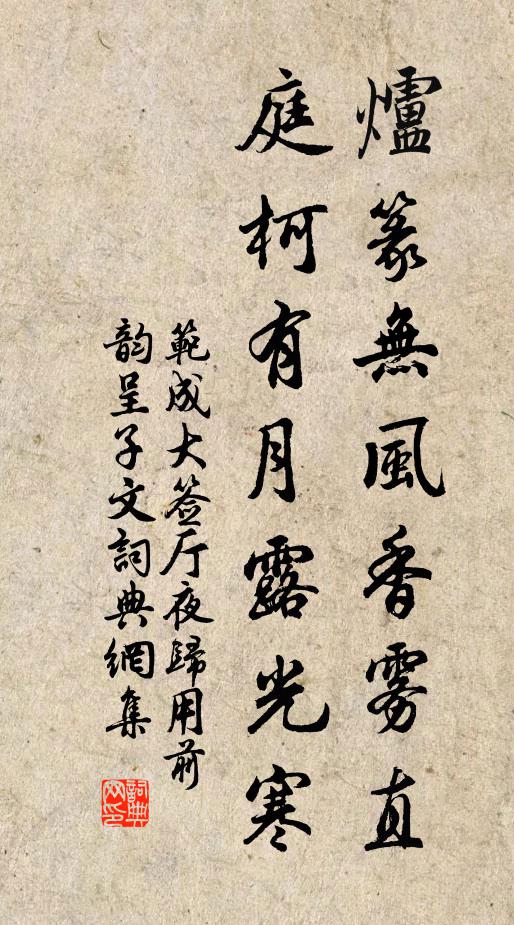 爐篆無風香霧直
庭柯有月露光寒
範成大签厅夜歸用前
韵呈子文詞典網集
詞典
网印